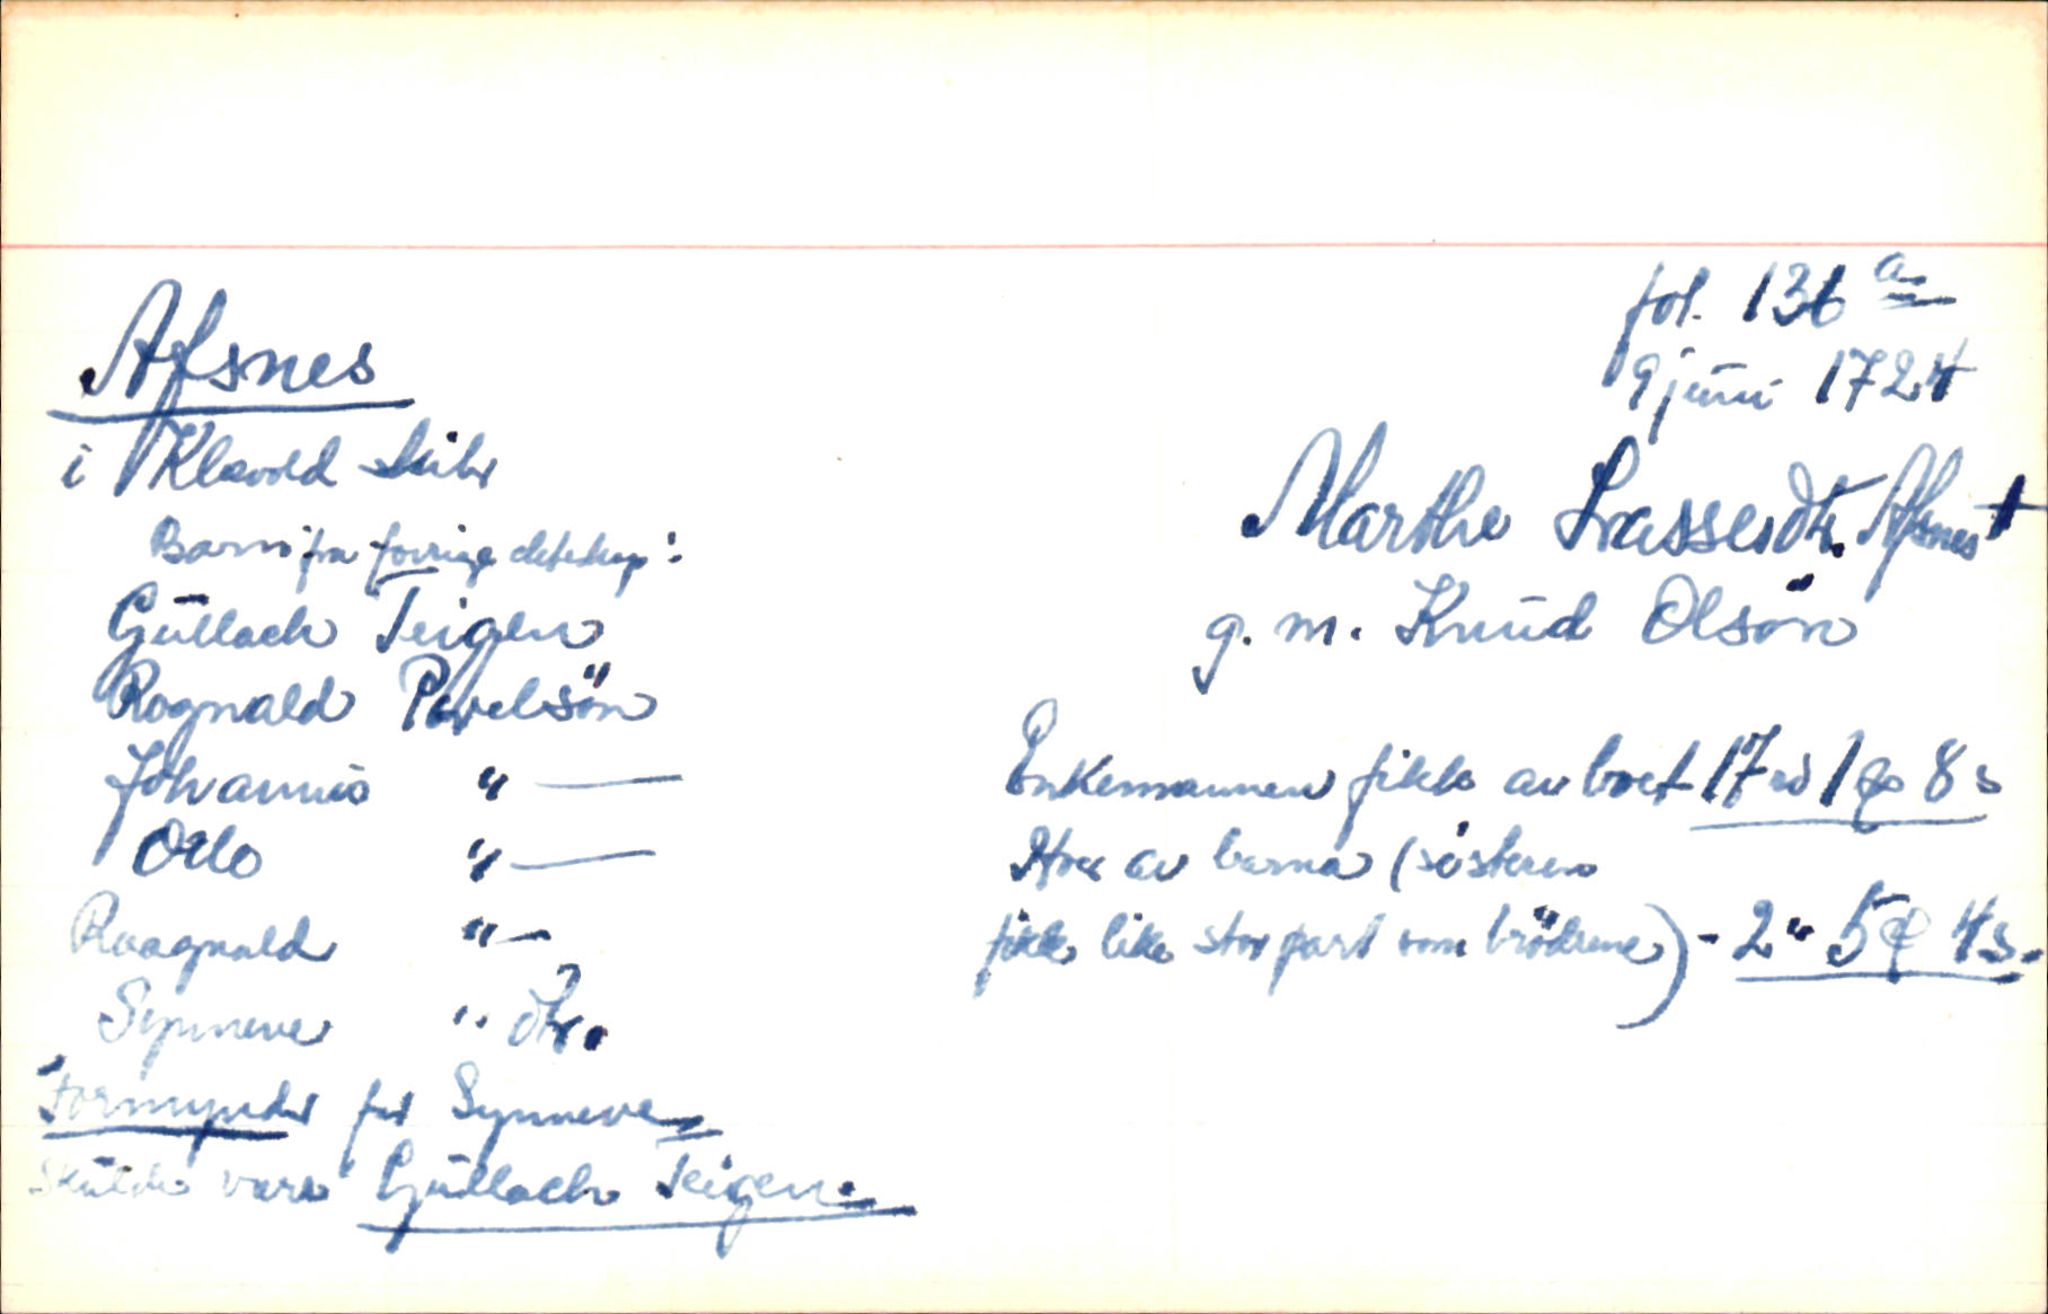 fol. 136 a
9 juni 1724
Afsnes
i Klævold skibr
Marthe Lassesdtr. Afsnes †
g. m. Knud Olsön
Barn fra forrige ekteskap:
Gullach Teigen
Rognald Povelsön
Johannis " —
Ole " —
Raagnald " —
Synneve " dtr.
Formynder for Synneve
skulde være Gullach Teigen.
Enkemannen fikk av boet 17 rd 1 ꝗ 8 s
Hver av barna (sösteren
fikk like stor part som brödrene) - 2 " 5 ꝗ 4 s.